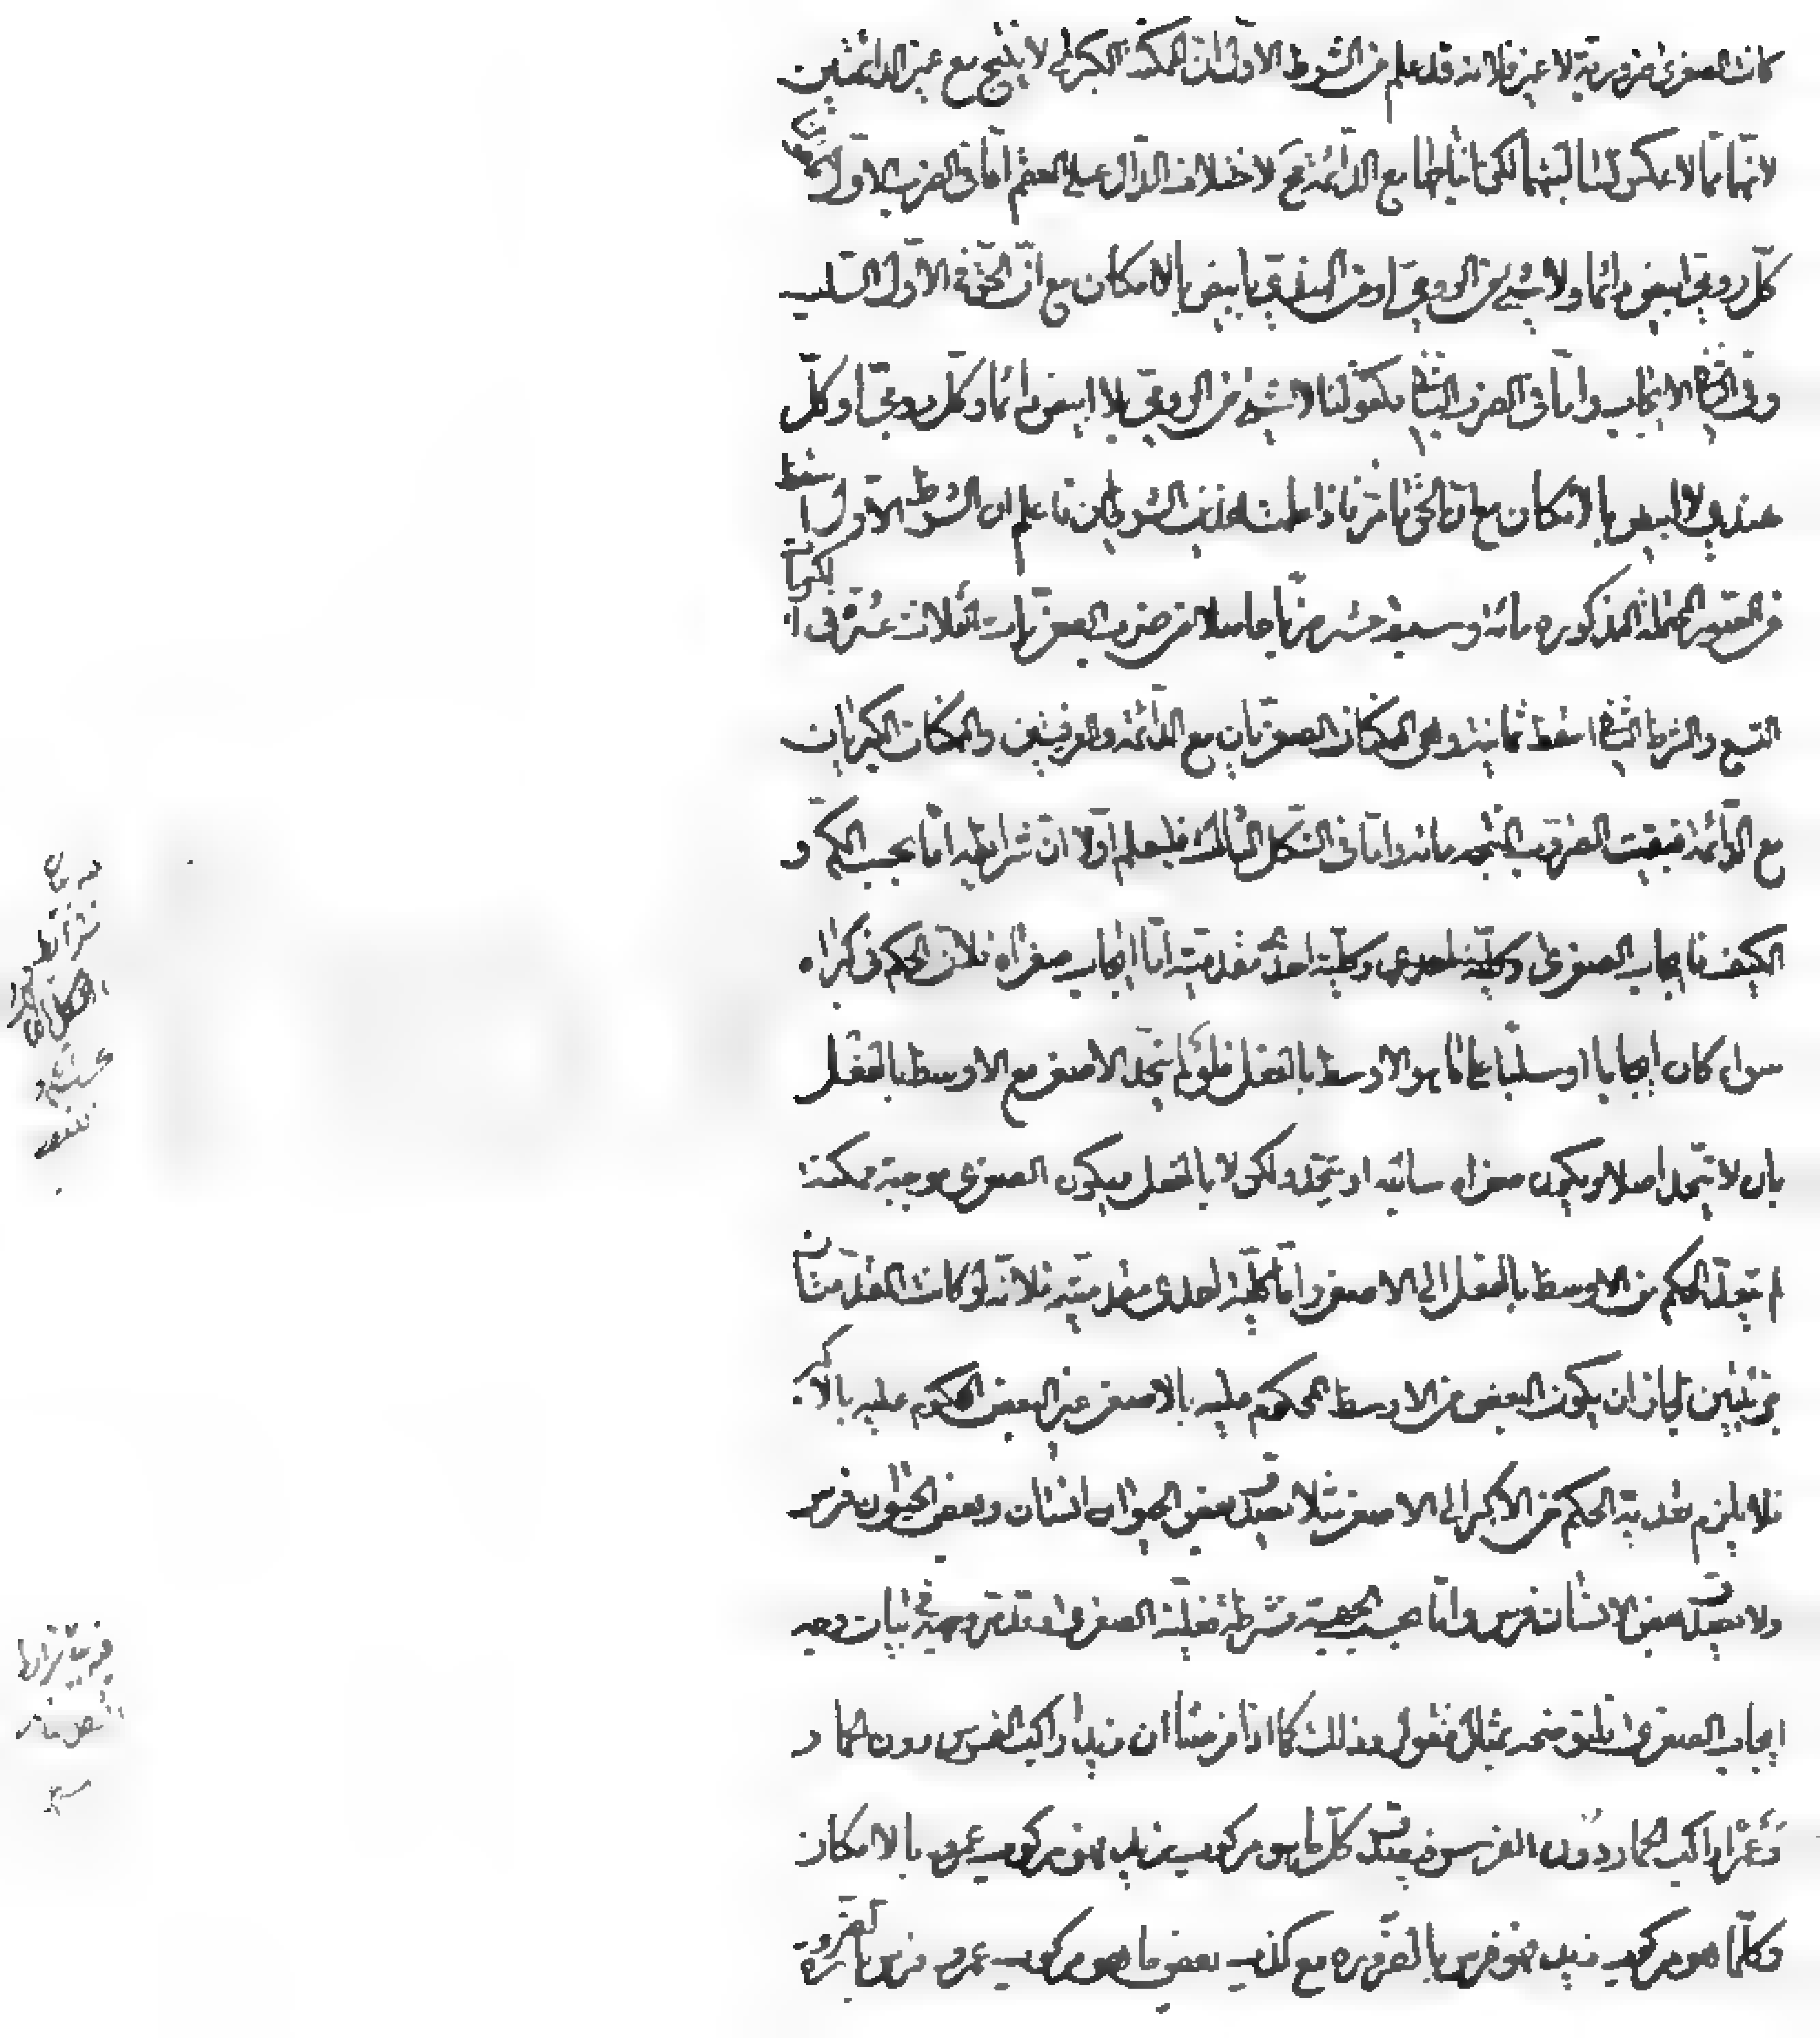 كانت الصغرى ضرورية لا غير فلانه قد علم من الشرط الاول ان الممكنة الكبرى لا ينتج مع غير الدائمتين
لانهما مما لا عكس لسالبتهما لكن اختلاطها مع الدائمة عقيم لاختلاف الدال على العقم اما في الضرب الاول فكقولنا
كل رومي ابيض دائما ولا شيء من الرومي او من الهندي بابيض بالامكان مع ان الحق في الاول السلب
وفي الثاني الايجاب واما في الضرب الثاني فكقولنا لا شيء من الرومي بلا ابيض دائما وكل رومي او كل
هندي لا ابيض بالامكان مع ان الحق ما مر فاذا علمت هذين الشرطين فاعلم ان الشرط الاول اسقط
من الصور المحتملة المذكورة مائة وسبعة عشر ضربا حاصلا من ضرب الصغريات الثلاث عشر في الكبريات
التسع والشرط الثاني اسقط ثمانية وهي الممكنتان الصغريان مع الدائمة والعرفيتين والممكنتان الكبريان
مع الدائمة فبقيت الضروب المنتجة مائة واما في الشكل الثالث فليعلم اولا ان شرايطه اما بحسب الكم و
الكيف فايجاب الصغرى وكلية احدى مقدمتيه اما ايجاب صغراه فلان الحكم في كبراه
سواء كان ايجابا او سلبا على ما هو الاوسط بالفعل فلو لم يتحد الاصغر مع الاوسط بالفعل
بان لا يتحد اصلا ويكون صغراه سالبة او يتحد ولكن لا بالفعل فيكون الصغرى موجبة ممكنة
لم يتعد الحكم من الاوسط بالفعل الى الاصغر واما كلية احدى مقدمتيه فلانه لو كانت المقدمتان
جزئيتين لجاز ان يكون البعض من الاوسط المحكوم عليه بالاصغر غير البعض المحكوم عليه بالاكبر
فلا يلزم تعدية الحكم من الاكبر الى الاصغر مثلا يصدق بعض الحيوان انسان وبعض الحيوان فرس
ولا يصدق بعض الانسان فرس واما بحسب الجهة فشرطه فعلية الصغرى وقد مر وجهه في بيان وجه
ايجاب الصغرى فلنوضحه بمثال فنقول وذلك كما اذا فرضنا ان زيدا راكب الفرس دون الحمار
وعمرا راكب الحمار دون الفرس فيصدق كل ما هو مركوب زيد فهو مركوب عمرو بالامكان
وكلما هو مركوب زيد فهو فرس بالضرورة مع كذب بعض ما هو مركوب عمرو فرس بالضرورة